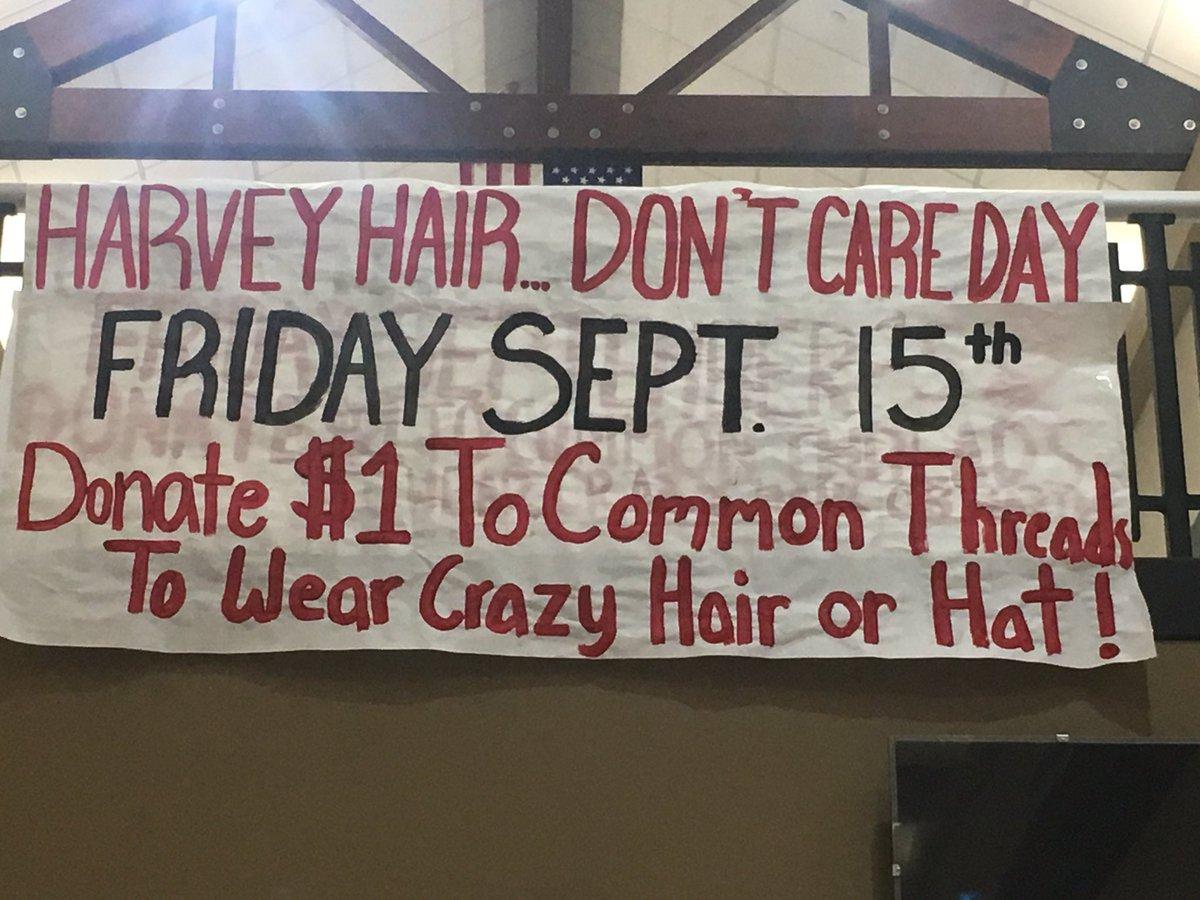 HARVEY HAIR... DON'T CARE DAY
FRIDAY SEPT. 15th
Donate $1 To Common Threads
To Wear Crazy Hair or Hat!